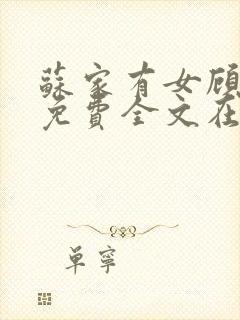 蘇家有女顾
免費全文在
单寧